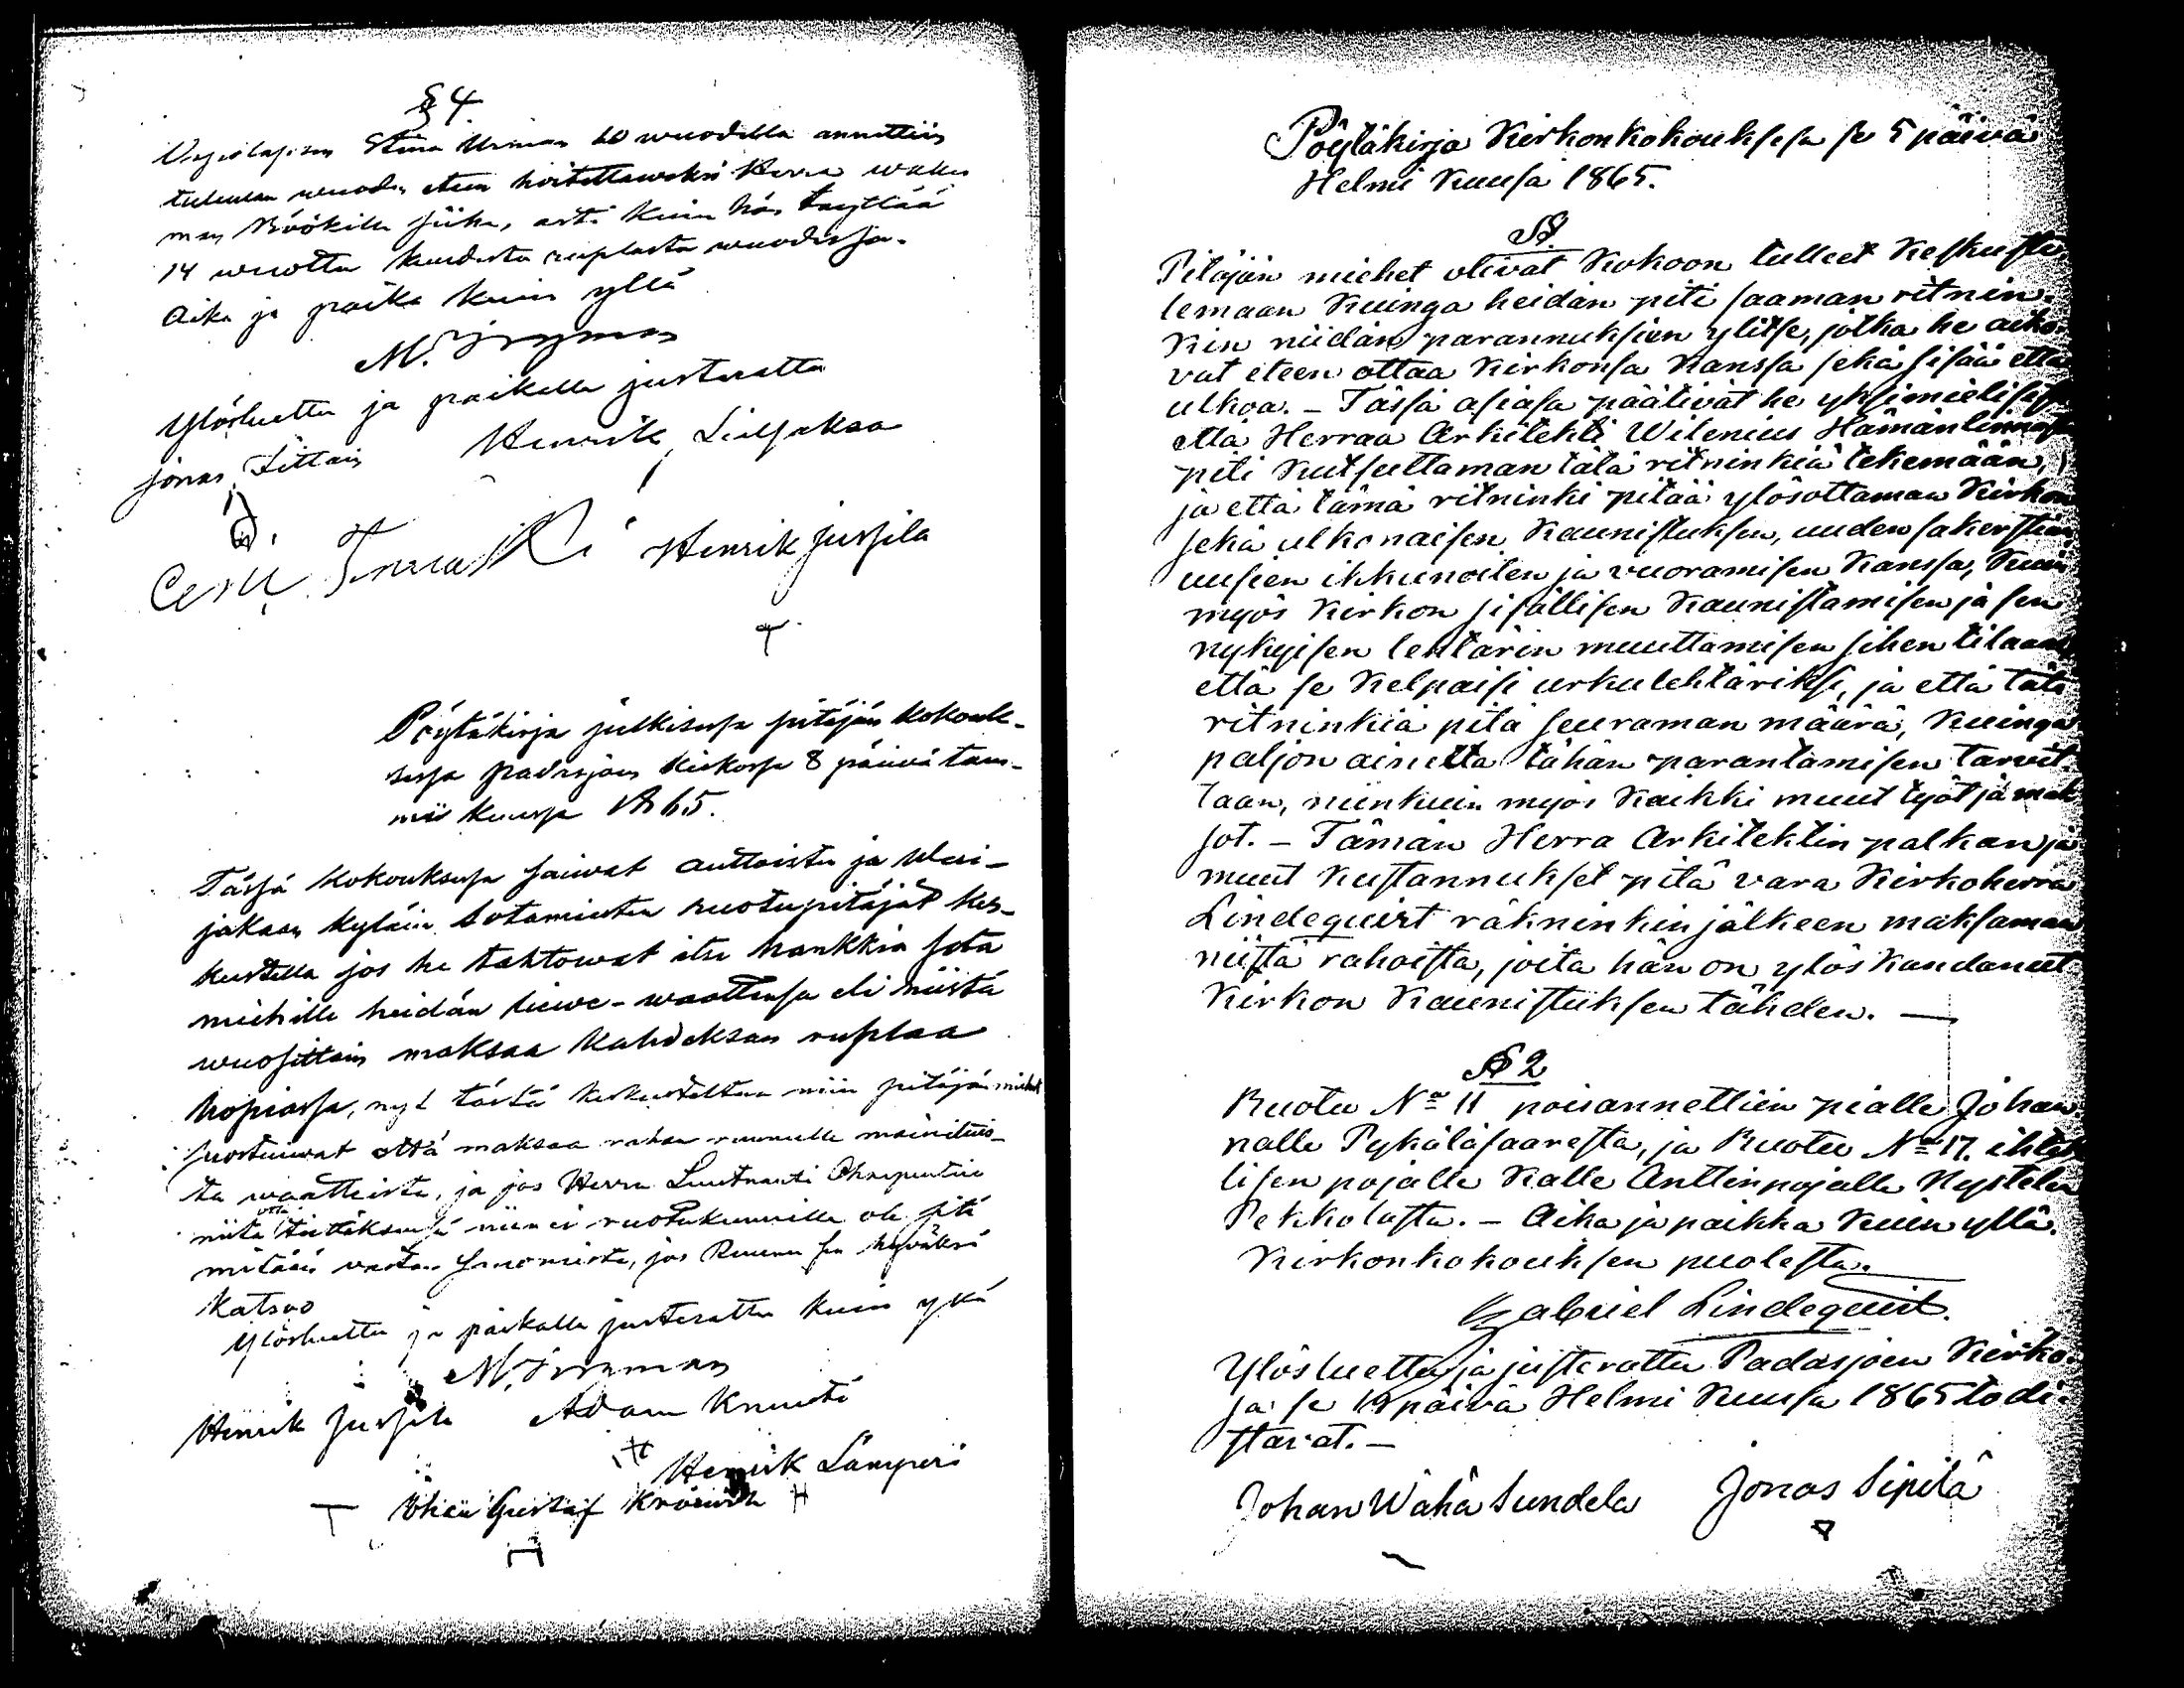 § 4.
Stina 10 wuodella annettiin
tulewan wuoden eteen hoitettawaksi Herra
Böökille siihen, asti kuin hän täyttää
14 wuotta kuudesta ruplasta wuodessa.
Aika ja paikka kuin yllä
M.
Ylösluettu ja paikalla justerattu
Jonas Henrik Liesjaksa
Henrik Jussila
Pöytäkirja julkisessa pitäjän kokouk-
sessa Padasjoen kirkossa 8 päiwä tam-
mi kuussa 1865.
Tässä kokouksessa saiwat Auttoisten ja
jakson kyläin sotamiesten ruotupitäjät kes-
kustella jos he tahtowat itse hankkia sota
miehille heidän liiwe-waattensa eli niistä
wuosittain maksaa kahdeksan ruplaa
hopiassa, nyt tästä keskusteltua niin pitäjän miehet
suostuiwat että maksaa rahaa ruunulle mainituis-
ta waatteista, ja jos Herra Luutnanti
niitä ottaa niin ei ruotukunnilla ole sitä
mitään wastaan sanomista, jos Ruunu sen hywäksi
katsoo
Ylösluettu ja paikalla justerattu kuin yllä
M.
Henrik Jussila Adam Knuuti
Henrik Lämperi
Johan Gustaf
Pöytäkirja Kirkonkokouksesa se 5 päivä
Helmi Kuusa 1865.
§ 1.
Pitäjän miehet olivat Kokoon tulleet Keskuste-
lemaan Kuinga heidän piti saaman ritnin-
kin niidän parannuksien ylitse, jotka he aiko-
vat eteen ottaa Kirkonsa Kanssa sekä sisää että
ulkoa. - Tässä asiasa päätivät he yksimielisesti
että Herraa Arkitekti Wilenius Hämänlinnast
piti Kutsuttaman tätä ritninkiä tekemään,
ja että tämä ritninki pitää ylösottaman Kirkon
sekä ulkonaisen Kaunistuksen, uuden sakerstian,
uusien ikkunoiten ja vuoramisen Kanssa, Kuin
myös Kirkon sisällisen Kaunistamisen ja sen
nykyisen lehtärin muuttamisen siihen tilaan,
että se Kelpaisi urkulehtäriksi, ja että tätä
ritninkiä pitä seuraman määrä, Kuinga
paljon ainetta tähän parantamisen tarvit-
taan, niinkuin myös Kaikki muut työt ja mak-
sot. - Tämän Herra Arkitektin palkan ja
muut Kustannukset pitä vara Kirkoherra
Lindequist räkninkin jälkeen maksaman
niistä rahoista, joita hän on ylös Kandanut
Kirkon Kaunistuksen tähden. —
§ 2
Ruotu No 11 poisannettiin pialle Johan-
nalle Pykäläsaaresta, ja Ruotu No 17.
lisen pojalle Kalle Anttinpojalle Nystelu
Pekkolasta. - Aika ja paikka Kuin yllä.
Kirkonkokouksen puolesta.
Gabriel Lindequist.
Ylösluettu ja justerattu Padasjoen Kirko-
sa se 19 päivä Helmi Kuusa 1865 todi-
stavat. -
Johan Wähä Sundela Jonas Sipilä